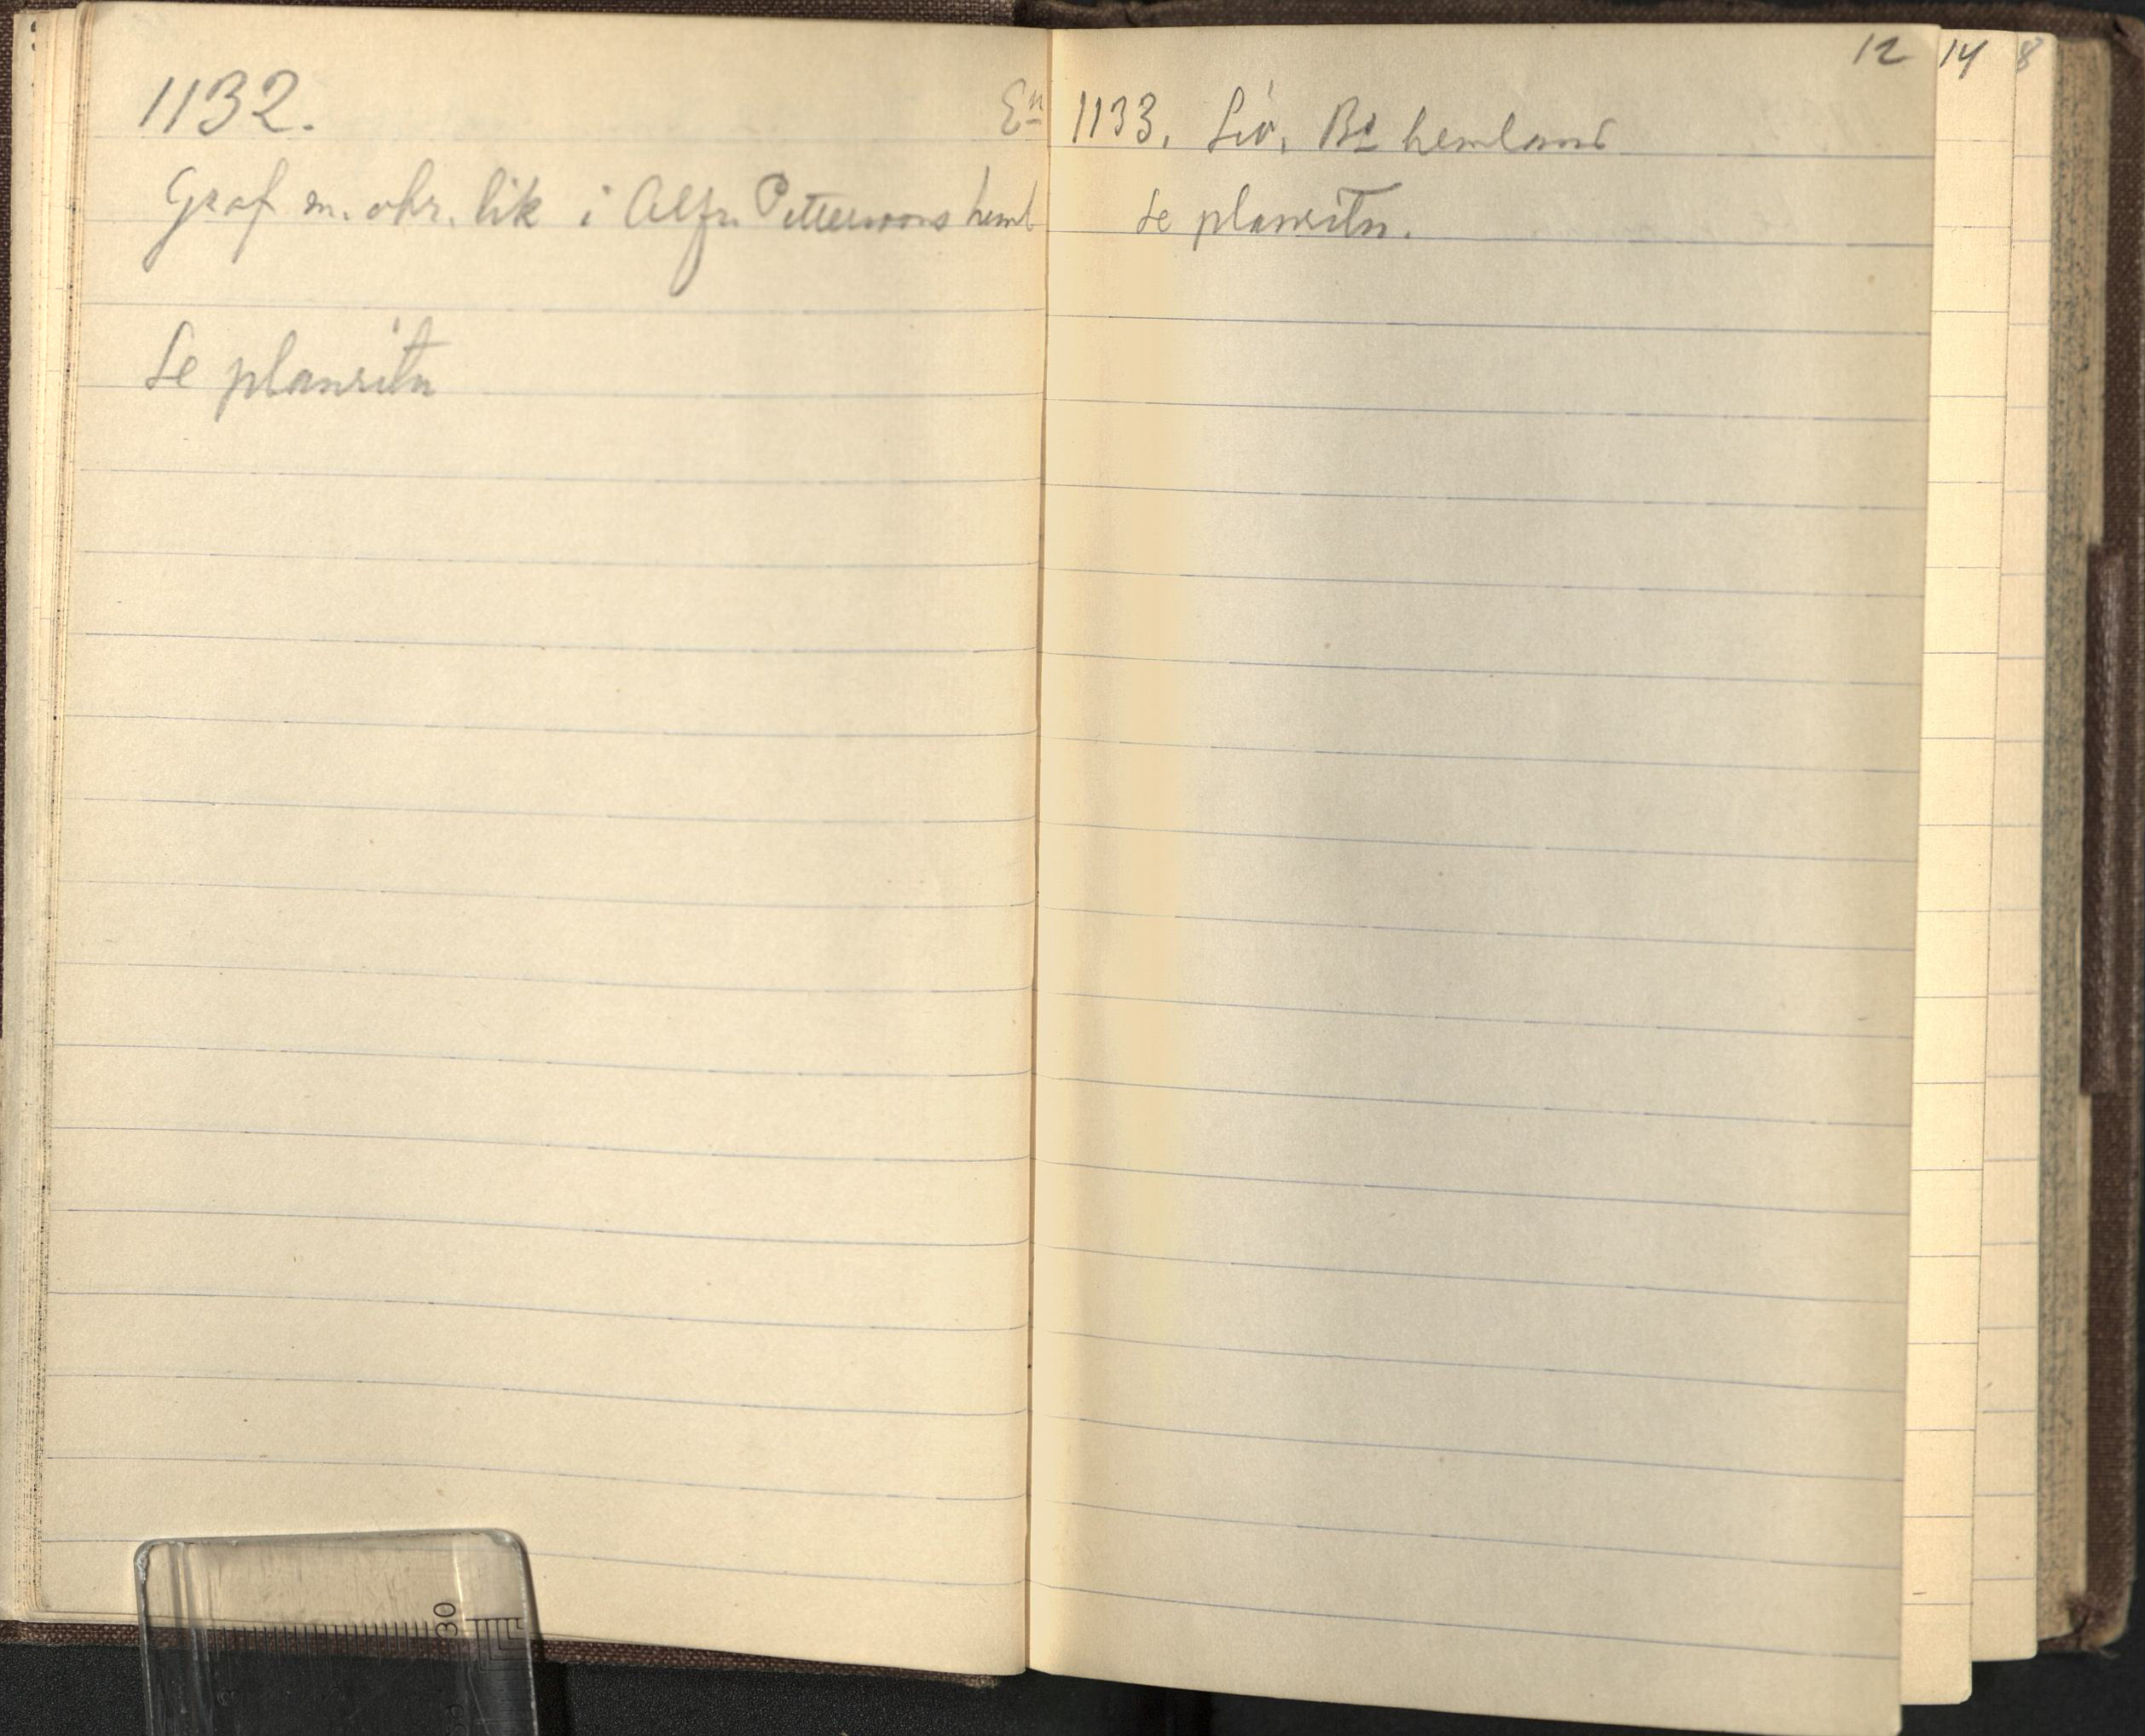 1132. En
Graf m. obr. lik i Alfr. Petterssons heml
Se planritn
12
1133. Liv. Bs hemland
se planritn.
14
8
30